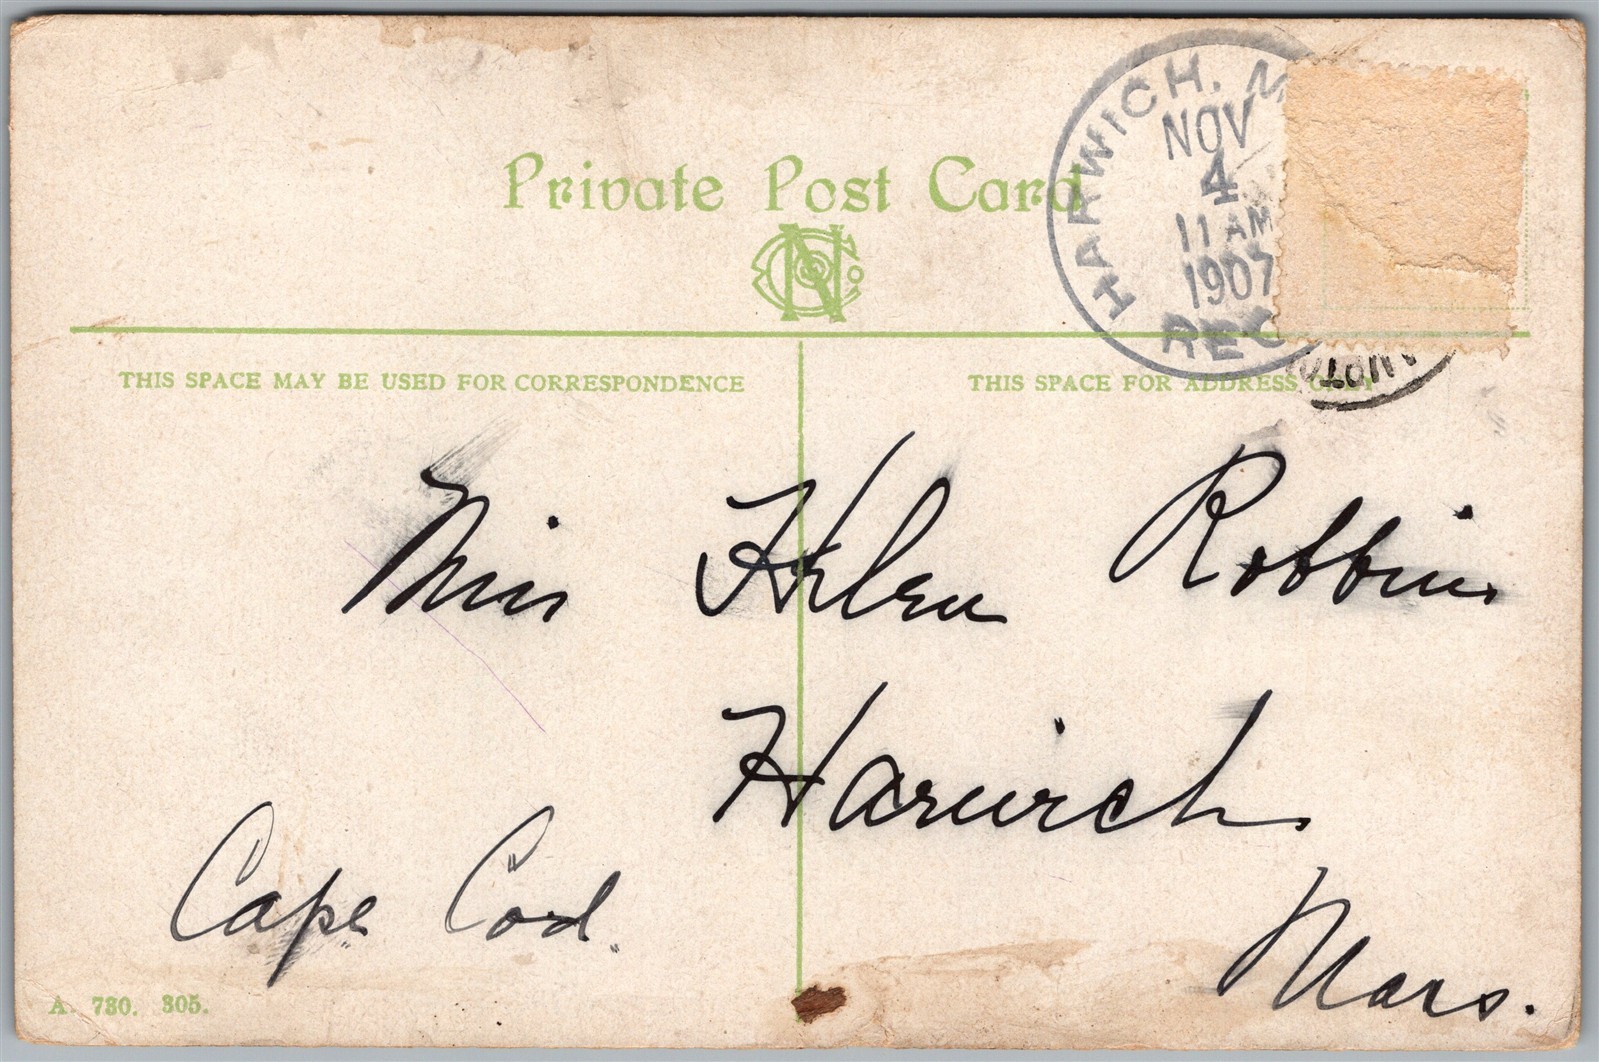 Private Post Card
HARWICH, M
NOV
4
11 AM
1907
REC
THIS SPACE MAY BE USED FOR CORRESPONDENCE
THIS SPACE FOR ADDRESS ONLY
Miss Helen Robbins
Harwich
Cape Cod.
Mass.
A. 730. 305.